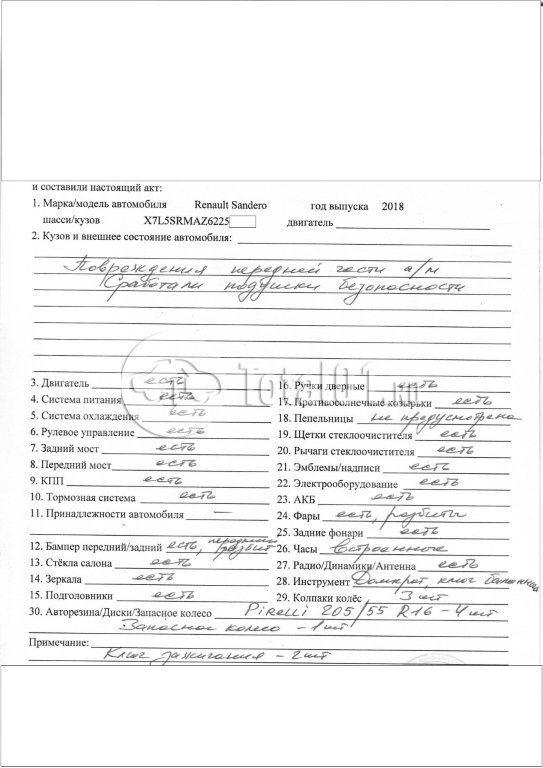 и составили настоящий акт:
1. Марка/модель автомобиля Renault Sandero год выпуска 2018
шасси/кузов X7L5SRMAZ6225 двигатель
2. Кузов и внешнее состояние автомобиля:
Повреждения передней части а/м
Сработали подушки безопасности
Total01.ru
3. Двигатель есть
4. Система питания есть
5. Система охлаждения есть
6. Рулевое управление есть
7. Задний мост есть
8. Передний мост есть
9. КПП есть
10. Тормозная система есть
11. Принадлежности автомобиля -
12. Бампер передний/задний есть, передний разбит
13. Стёкла салона есть
14. Зеркала есть
15. Подголовники есть
16. Ручки дверные есть
17. Противосолнечные козырьки есть
18. Пепельницы не предусмотрена
19. Щетки стеклоочистителя есть
20. Рычаги стеклоочистителя есть
21. Эмблемы/надписи есть
22. Электрооборудование есть
23. АКБ есть
24. Фары есть, разбиты
25. Задние фонари есть
26. Часы Встроенное
27. Радио/Динамики/Антенна есть
28. Инструмент Домкрат, ключ балонный
29. Колпаки колёс 3 шт
30. Авторезина/Диски/Запасное колесо Pirelli 205/55 R16 - 4 шт
Запасное колесо - 1 шт
Примечание:
Ключ зажигания - 2 шт